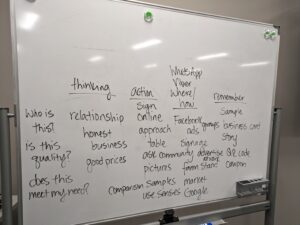 WhatsApp
Viber
thinking action Where/ remember
how
Sign Sample
Who is relationship online Facebook groups business card
this? honest approach ads story
is this business table signage
quality? good prices ask community advertise QR code
pictures farm stand coupon
does this comparison samples market
meet my need? use senses Google